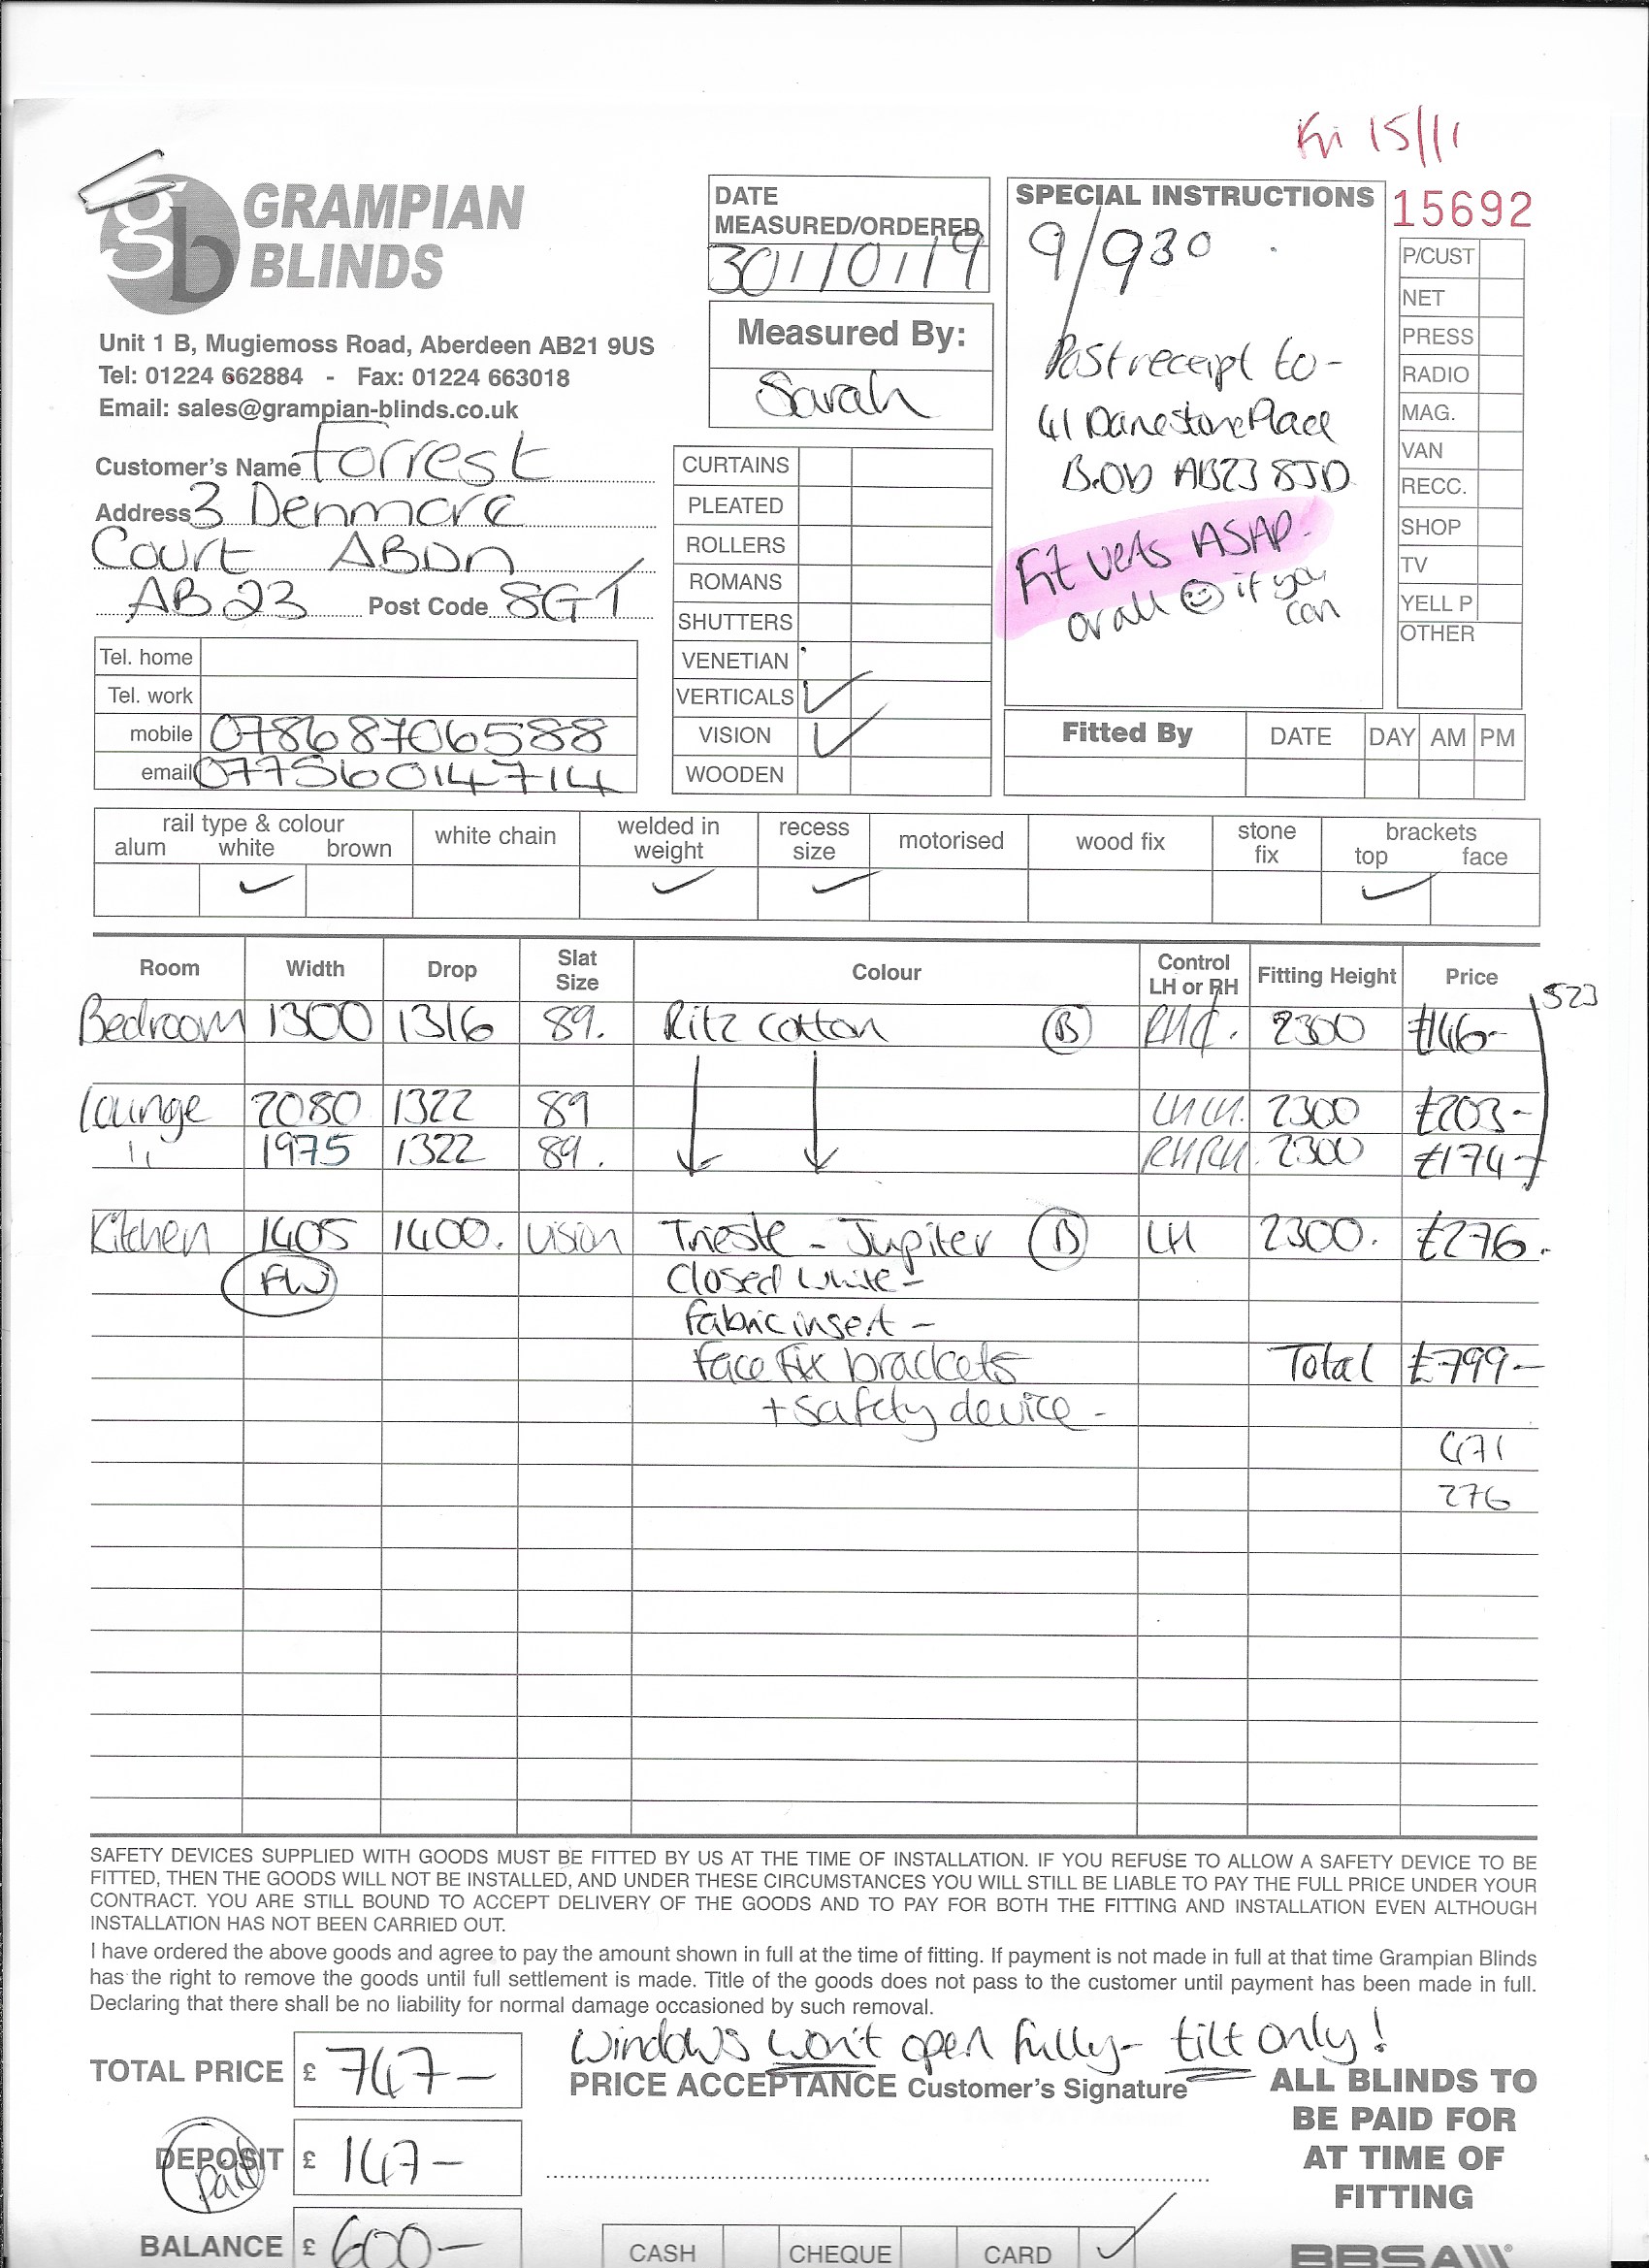 Fri 15/11
GRAMPIAN
BLINDS
Unit 1 B, Mugiemoss Road, Aberdeen AB21 9US
Tel: 01224 662884 - Fax: 01224 663018
Email: sales@grampian-blinds.co.uk
DATE
MEASURED/ORDERED
30/10/19
Measured By:
Sarah
SPECIAL INSTRUCTIONS
9/930
Post receipt to -
41 Danestone Place
B.OD AB23 8JD
Fit verts ASAP.
or all if you
can
15692
P/CUST
NET
PRESS
RADIO
MAG.
VAN
RECC.
SHOP
TV
YELL P
OTHER
Customer's Name Forrest
Address 3 Denmore
Court ABDN
AB23 Post Code 8GT
Tel. home
Tel. work
mobile 07868706588
email 07756014714
CURTAINS
PLEATED
ROLLERS
ROMANS
SHUTTERS
VENETIAN
VERTICALS ✓
VISION ✓
WOODEN
Fitted By DATE DAY AM PM
rail type & colour
alum white brown
white chain
welded in
weight
recess
size
motorised
wood fix
stone
fix
brackets
top face
✓ ✓ ✓ ✓
Room Width Drop Slat Size Colour Control LH or RH Fitting Height Price
523
Bedroom 1300 1316 89. Ritz cotton B 2300 £146-
Lounge 2080 1322 89 LHLH. 2300 £203-
" 1975 1322 89. RHRH. 2300 £174-
Kitchen 1405 1400. vision Trieste - Jupiter B LH 2300. £276.
FW Closed white -
fabric insert -
face fix brackets Total £799-
+ safety device -
471
276
SAFETY DEVICES SUPPLIED WITH GOODS MUST BE FITTED BY US AT THE TIME OF INSTALLATION. IF YOU REFUSE TO ALLOW A SAFETY DEVICE TO BE
FITTED, THEN THE GOODS WILL NOT BE INSTALLED, AND UNDER THESE CIRCUMSTANCES YOU WILL STILL BE LIABLE TO PAY THE FULL PRICE UNDER YOUR
CONTRACT. YOU ARE STILL BOUND TO ACCEPT DELIVERY OF THE GOODS AND TO PAY FOR BOTH THE FITTING AND INSTALLATION EVEN ALTHOUGH
INSTALLATION HAS NOT BEEN CARRIED OUT.
I have ordered the above goods and agree to pay the amount shown in full at the time of fitting. If payment is not made in full at that time Grampian Blinds
has the right to remove the goods until full settlement is made. Title of the goods does not pass to the customer until payment has been made in full.
Declaring that there shall be no liability for normal damage occasioned by such removal.
Windows won't open fully - tilt only!
TOTAL PRICE £ 747-
PRICE ACCEPTANCE Customer's Signature
DEPOSIT £ 147-
paid
BALANCE £ 600-
CASH CHEQUE CARD ✓
ALL BLINDS TO
BE PAID FOR
AT TIME OF
FITTING
BBSA